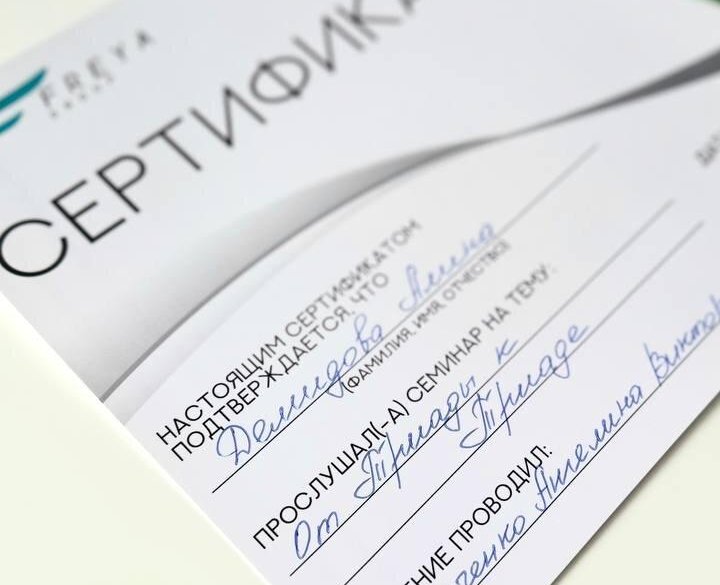 FREYA
СЕРТИФИКА
НАСТОЯЩИМ СЕРТИФИКАТОМ
ПОДТВЕРЖДАЕТСЯ, ЧТО
Демидова Алина
(ФАМИЛИЯ, ИМЯ ОТЧЕСТВО)
ПРОСЛУШАЛ(-А) СЕМИНАР НА ТЕМУ:
От Триады к
Триаде
ЕНИЕ ПРОВОДИЛ:
ченко Ангелина Виктов